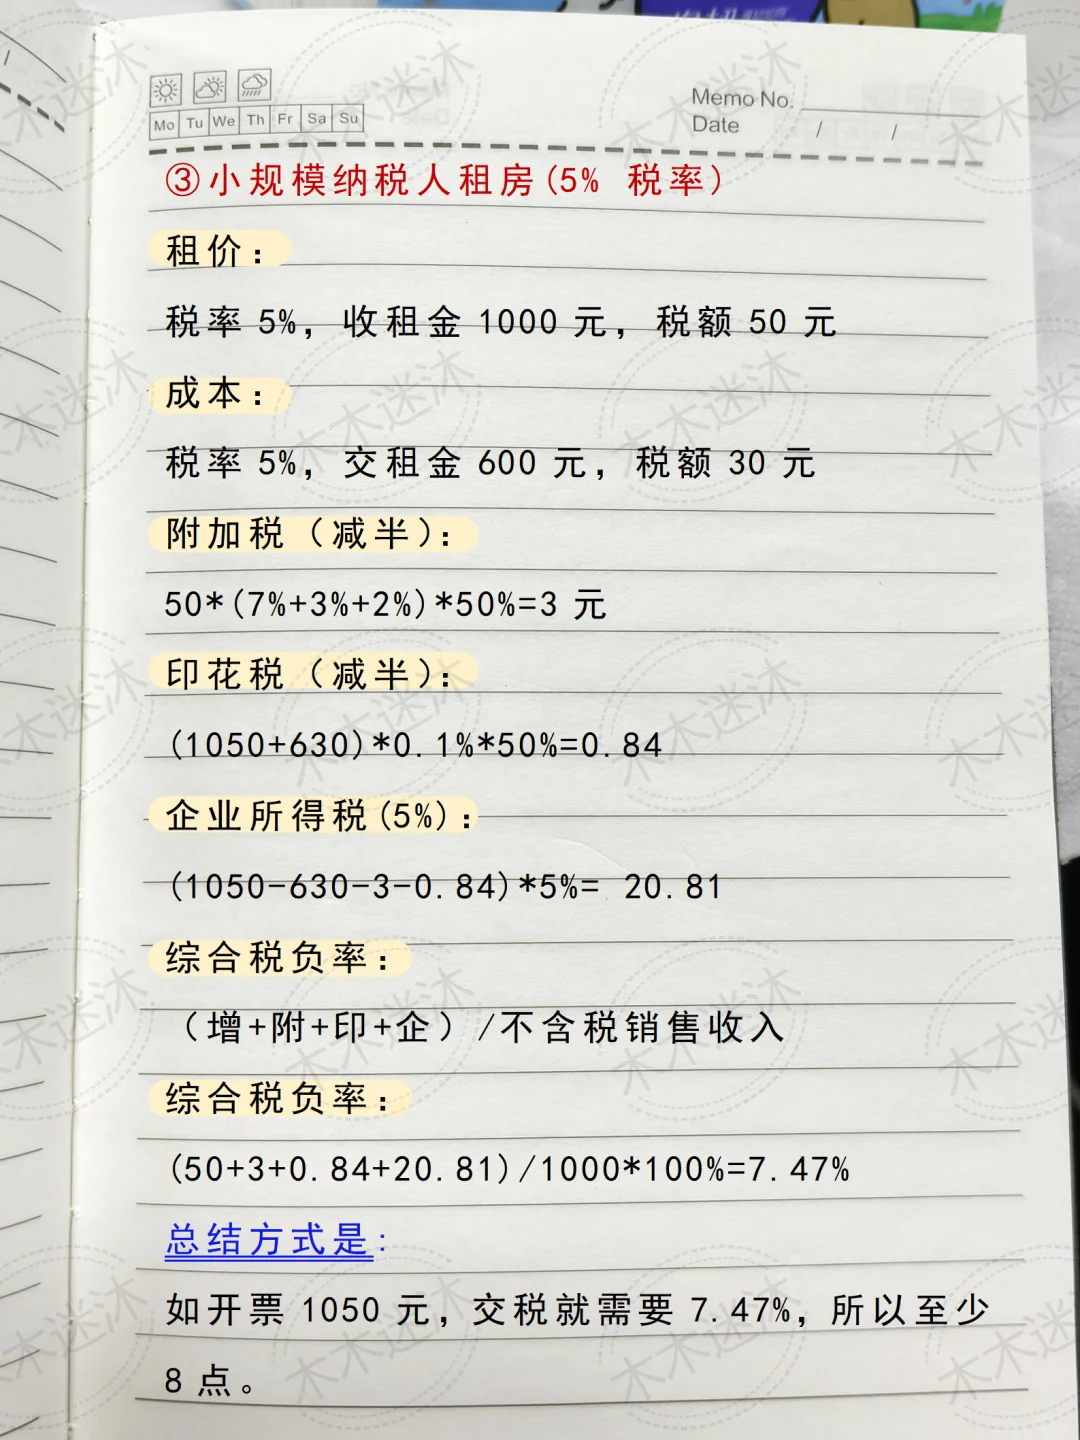 Memo No.
Mo Tu We Th Fr Sa Su
Date / /
③小规模纳税人租房(5% 税率)
租价：
税率 5%，收租金 1000 元，税额 50 元
成本：
税率 5%，交租金 600 元，税额 30 元
附加税（减半）：
50*(7%+3%+2%)*50%=3 元
印花税（减半）：
(1050+630)*0.1%*50%=0.84
企业所得税(5%)：
(1050-630-3-0.84)*5%= 20.81
综合税负率：
（增+附+印+企）/不含税销售收入
综合税负率：
(50+3+0.84+20.81)/1000*100%=7.47%
总结方式是:
如开票 1050 元，交税就需要 7.47%，所以至少
8 点。
木木迷沐